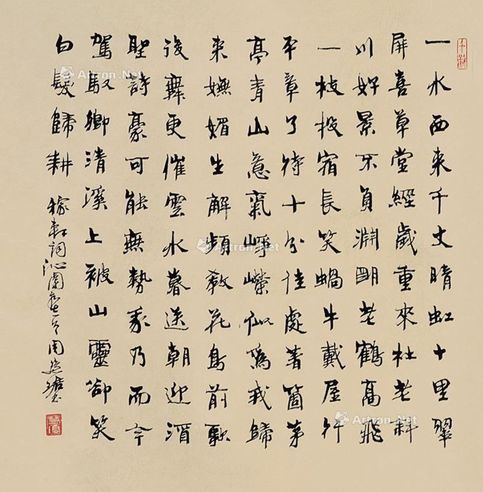 一水西来千丈晴虹十里翠
屏喜草堂經歲重来杜老斜
川好景不負淵明老鶴高飛
一枝投宿長笑蝸牛戴屋行
平章了待十分佳處著箇茅
亭青山意氣崢嶸似爲我歸
来嫵媚生解頻教花鳥前歌
後舞更催雲水暮送朝迎酒
聖詩豪可能無勢我乃而今
駕馭卿清溪上被山靈卻笑
白髮歸耕 稼軒詞沁園春一首周